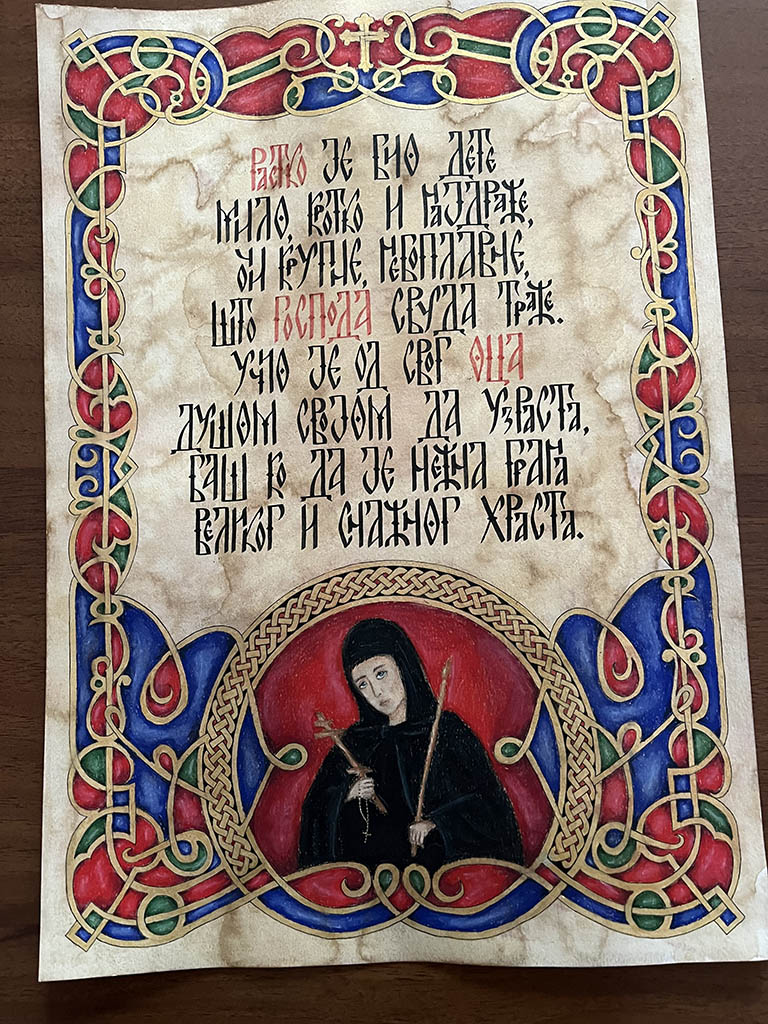 Растко је био дете
мило, кротко и најдраже,
очи крупне, небоплавне,
што Господа свуда траже.
Учио је од свог оца
душом својом да узраста,
баш ко да је нежна грана
великог и снажног храста.